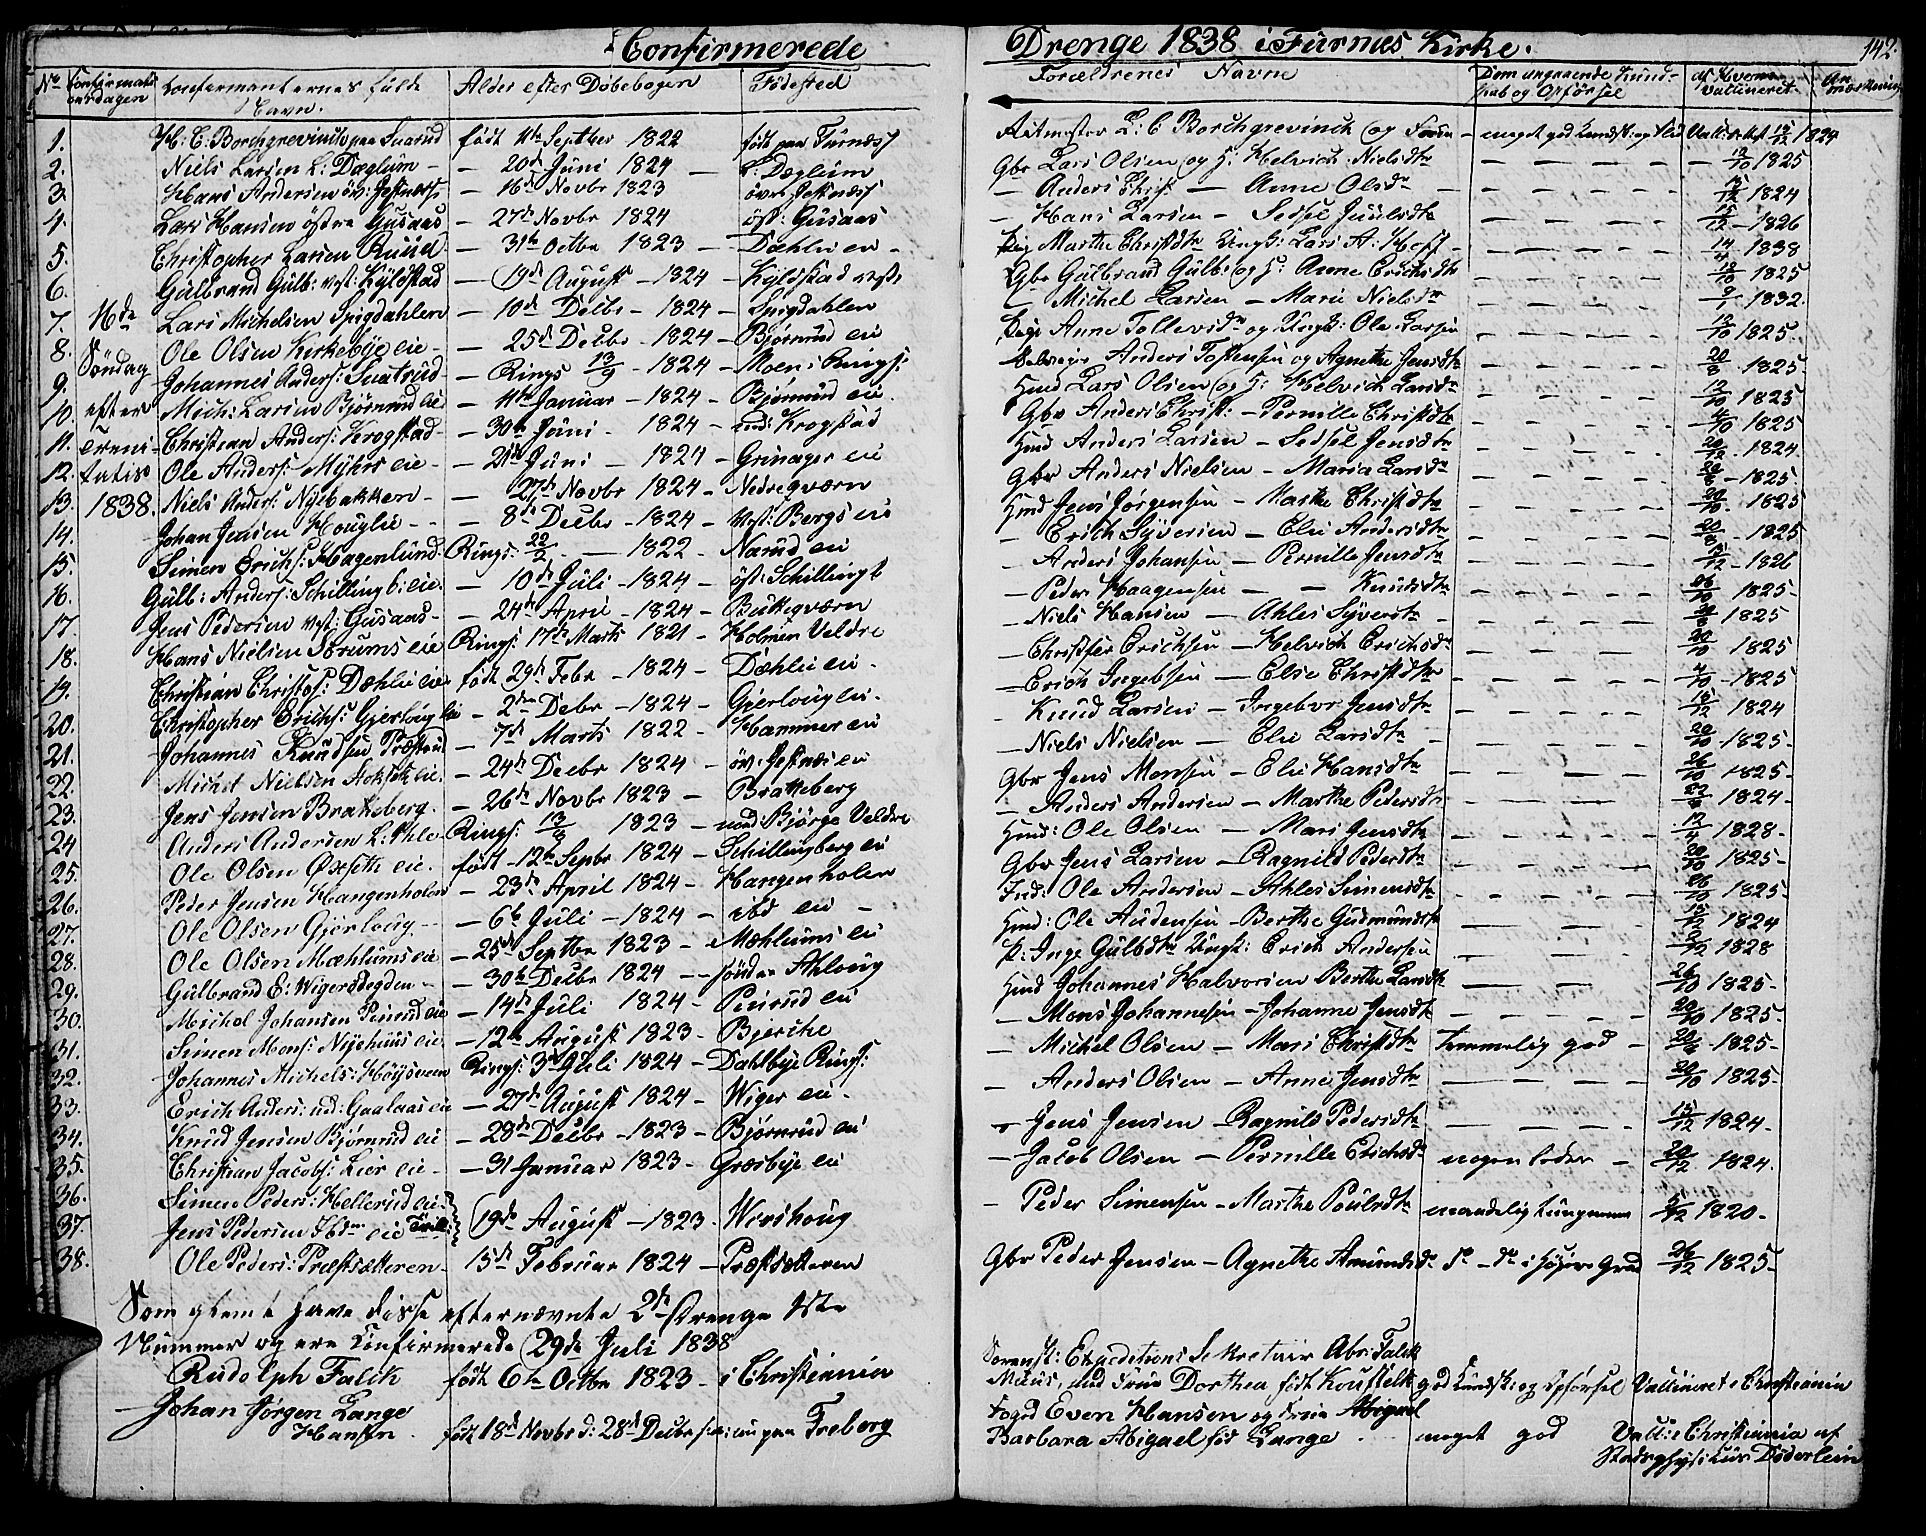 Confirmerede Drenge 1838 i Furnes Kirke. 142
No Confirmationsdagen Confirmanternes fulde Navn. Alder efter Döbebogen Födested Forældrenes Navne Dem angaaende Kundskab og Opförsel af Hvem Vaccineret Anmærkning
16de Söndag efter Trinitatis 1838.
1. H: C: Borchgrevinck födt 11te Septbr 1822 födt paa Furnæss Ritmester L: C Borchgrevinck og Frue meget god Kundsk: og Flid Vacc 15/12 1824
2. Niels Larsen L: Dæglum — 20de Juni 1824 — L: Dæglum Gbr Lars Olsen og H: Helvich Nielsdtr 12/10 1825
3. Hans Andersen öv: Jessnæss — 16de Novbr 1823 övr Jessnæss — Anders Christ — Anne Olsdtr 15/12 1824
4. Lars Hansen östre Gusaas — 27de Novbr 1824 öst: Gusaas — Hans Larsen — Sedsel Juulsdtr 15/12 1826
5. Christopher Larsen Ruud — 31te Octbr 1823 — Dæhlie eie Pig Marthe Christdtr Ungk: Lars A: Hoff 14/4 1838
6. Gulbrand Gulb: vest: Kylstad — 19de August — 1824 — Kylstad vest: Gbr Gulbrand Gulb: og H: Anne Erichsdtr 12/10 1825
7. Lars Michelsen Spigdahlen — 10de Decbr — 1824 — Spigdahlen — Michel Larsen — Marie Nielsdtr 9/1 1832.
8. Ole Olsen Kirkebye eie — 25de Decbr — 1824 — Bjørnrud eie Pige Anne Tollevsdtr og Ungk: Ole Larsen 12/10 1825.
9. Johannes Anders: — Rings 13/9 — 1824 — Moen i Rings: Anders Tostensen og Agnethe Jensdtr 20/8 1825
10. Mich: Larsen Bjørnrud eie — 11te Januar — 1824 — Bjørnrud eie. Huusmd Lars Olsen og H: Helvich Larsdtr 12/10 1825
11. Christian Anders: Krogstad — 30te Juni — 1824 — Krogstad Gbr Anders Christ: — Pernille Christdtr 4/10 1825
12. Ole Anders: Myhrs eie — 21de Juni — 1824 — Grinager eie Huusmd Anders Larsen — Sedsel Jensdtr 20/12 1824
13. Niels Anders: Nybakken — 27de Novbr 1824 — Nedreqværn Gbr Anders Nielsen — Maria Larsdtr 20/8 1825
14. Johan Jensen Houglie — 8de Decbr — 1824 — Vest: Bergs eie Huusmd Jens Jørgensen — Marthe Christdtr 20/10 1825
15. Simen Erichs: Hagenlund Rings: 22/2 — 1822 — Narud eie — Erich Syversen — Elie Andersdtr 20/8 1825
16. Gulb: Anders: Schillingb: eie — 10de Juli — 1824 — öst: Schillingb — Anders Johansen — Pernille Jensdtr 12 1826
17. Jens Pedersen vest: Gusaas — 24de April — 1824 — Butteqværn — Peder Haagensen — — Knudsdtr 26/10 1825
18. Hans Nielsen Strums eie Rings: 17de Marts 1821 — Holmen Veldre — Niels Hansen — Ahles Syversdtr 1825
19. Christian Christof: Dæhlie eie födt 29de Febr — 1824 — Dæhlie eie — Christfer Erichsen — Helvich Erichsdtr 20/10 1825
20. Christopher Erichs: Gjerloug eie — 2den Decbr — 1824 — Gjerloug eie — Erich Ingebsen — Else Christdtr 4/10 1825
21. Johannes Knudsen Præsterud — 7de Marts 1822 — Hammer eie — Knud Larsen — Ingebor Jensdtr 15/12 1824
22. Michel Nielsen Stokset eie — 24de Decbr 1824 — öv: Jessnæs eie — Niels Nielsen — Elie Larsdtr 20/10 1825
23. Jens Jensen Brateberg — 26de Novbr 1823 — Bratteberg Gbr Jens Monsen — Elie Hansdtr 26/10 1825
24 Anders Andersen L: Ahle Rings: 13/8 1823 — nord: Bjørge Veldre — Anders Andersen — Marthe Pedersdtr 1824
25. Ole Olsen Øxseth eie födt 12te Sepbr 1824 — Schillingberg eie Huusmd: Ole Olsen — Mari Jensdtr 12/4 1828
26. Peder Jensen Hangenholen — 23de April 1824 — Hangenholen Gbr Jens Larsen — Ragnild Pedersdtr 20/10 1825
27. Ole Olsen Gjerloug — 6te Juli — 1824 — ibd eie — Ole Andersen — Ahles Simensdtr 26/10 1825
28. Ole Olsen Mæhlums eie — 25de Septbr 1823 — Mæhlums eie Huusmd: Ole Audensen — Berthe Gudmundsdtr 15/12 1824
29. Gulbrand E: Wigersdegden — 30te Decbr 1824 — söndre Ahloug P: Inge Gulbdtr Ungk: Erich Andersen 12 1828
30. Michel Johansen Pinrud eie — 14de Juli 1824 — Pinrud eie Huusmd Johannes Halvorsen Berthe Larsdtr 26/10 1825
31. Simen Mons: Nyehuus eie — 12te August 1823 — Bjerche — Mons Johannesen — Johanne Jensdtr 20/10 1825
32. Johannes Michels: Höysveen Rings: 3de Juli 1824 — Dahlbye Rings: — Michel Olsen — Mari Christdtr Temmelig god 20/8 1825
33. Erich Anders: nd: Gaalaas eie — 27de August 1824 — Wiger eie — Anders Olsen — Anne Jensdtr 20/10 1825
34. Knud Jensen Bjørnrud eie — 28de Decbr — 1823 — Bjørnrud eie — Jens Jensen — Ragnild Pedersdtr 15/12 1824
35. Christian Jacobs: Lier eie — 31 Januar 1823 — Græsbye eie — Jacob Olsen — Pernille Erichsdtr nogenledes 20/12 1824.
36. Simen Peders: Hellerud eie
37. Jens Pedersen Ibdm eie Tvill: 19de August — 1823 — Wershoug — Peder Simensen — Marthe Poulsdtr maadelig 5/12 1820
38. Ole Peders: Præstsætteren — 15de Februar 1824 — Præstsætteren Gbr Peder Jensen — Agnethe Amundsdtr do — do i höjere Grad 26/12 1825
Som glemt have disse efternævnte 2de Drenge Iste
Nummer og ere Confirmerede 29de Juli 1838
Rudolph Falck födt 6te Octbr 1823 — i Christiania Expeditions Sekretair Abr: Falck
Muus, med Frue Dorthea födt god Kundsk: og Opförsel Vaccineret i Christiania
Johan Jörgen Lange Foged Even Hansen og Frue Abigael
Hansen. födt 18de Novbr d: 28de Decbr paa Freberg Barbara Abigael föd Lange meget god Vacc: i Christiania af
Stadsphysicus Döderlein